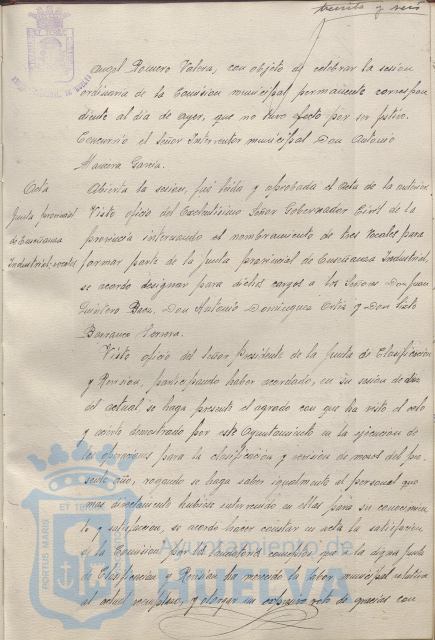 treinta y seis
Angel Romero Valera, con objeto de celebrar la sesion
ordinaria de la Comision municipal permanente correspon
diente al dia de ayer, que no tuvo efecto por ser festivo.
Concurrio el señor Interventor municipal Don Antonio
Mancera Garcia.
Acta
Abierta la sesion, fué leida y aprobada el acta de la anterior.
Junta provincial
de Enseñanza
Industrial, vocales
Visto oficio del Excelentisimo Señor Gobernador Civil de la
provincia interesando el nombramiento de tres Vocales para
formar parte de la Junta provincial de Enseñanza Industrial,
se acordo designar para dichos cargos a los Señores Don Juan
Quintero Baez, Don Antonio Dominguez Ortiz y Don
Barranco Herrera.
Visto oficio del señor Presidente de la Junta de Clasificación
y Revision, participando haber acordado, en su sesion de
del actual, se haga presente el agrado con que ha visto el celo
y acierto demostrado por este Ayuntamiento en la ejecucion de
las operaciones para la clasificacion y revision de mozos del pre
sente año, rogando se haga saber igualmente al personal que
mas directamente hubiese intervenido en ellas para su conocimien
to y satisfaccion, se acordo hacer constar en acta la satisfaccion
de la Comision por el concepto que a la digna Junta
de Clasificacion y Revision ha merecido la labor municipal relativa
al actual reemplazo, y otorgar un voto de gracias con
PORTUS MARIS
ET TERRAE
Ayuntamiento de
HUELVA